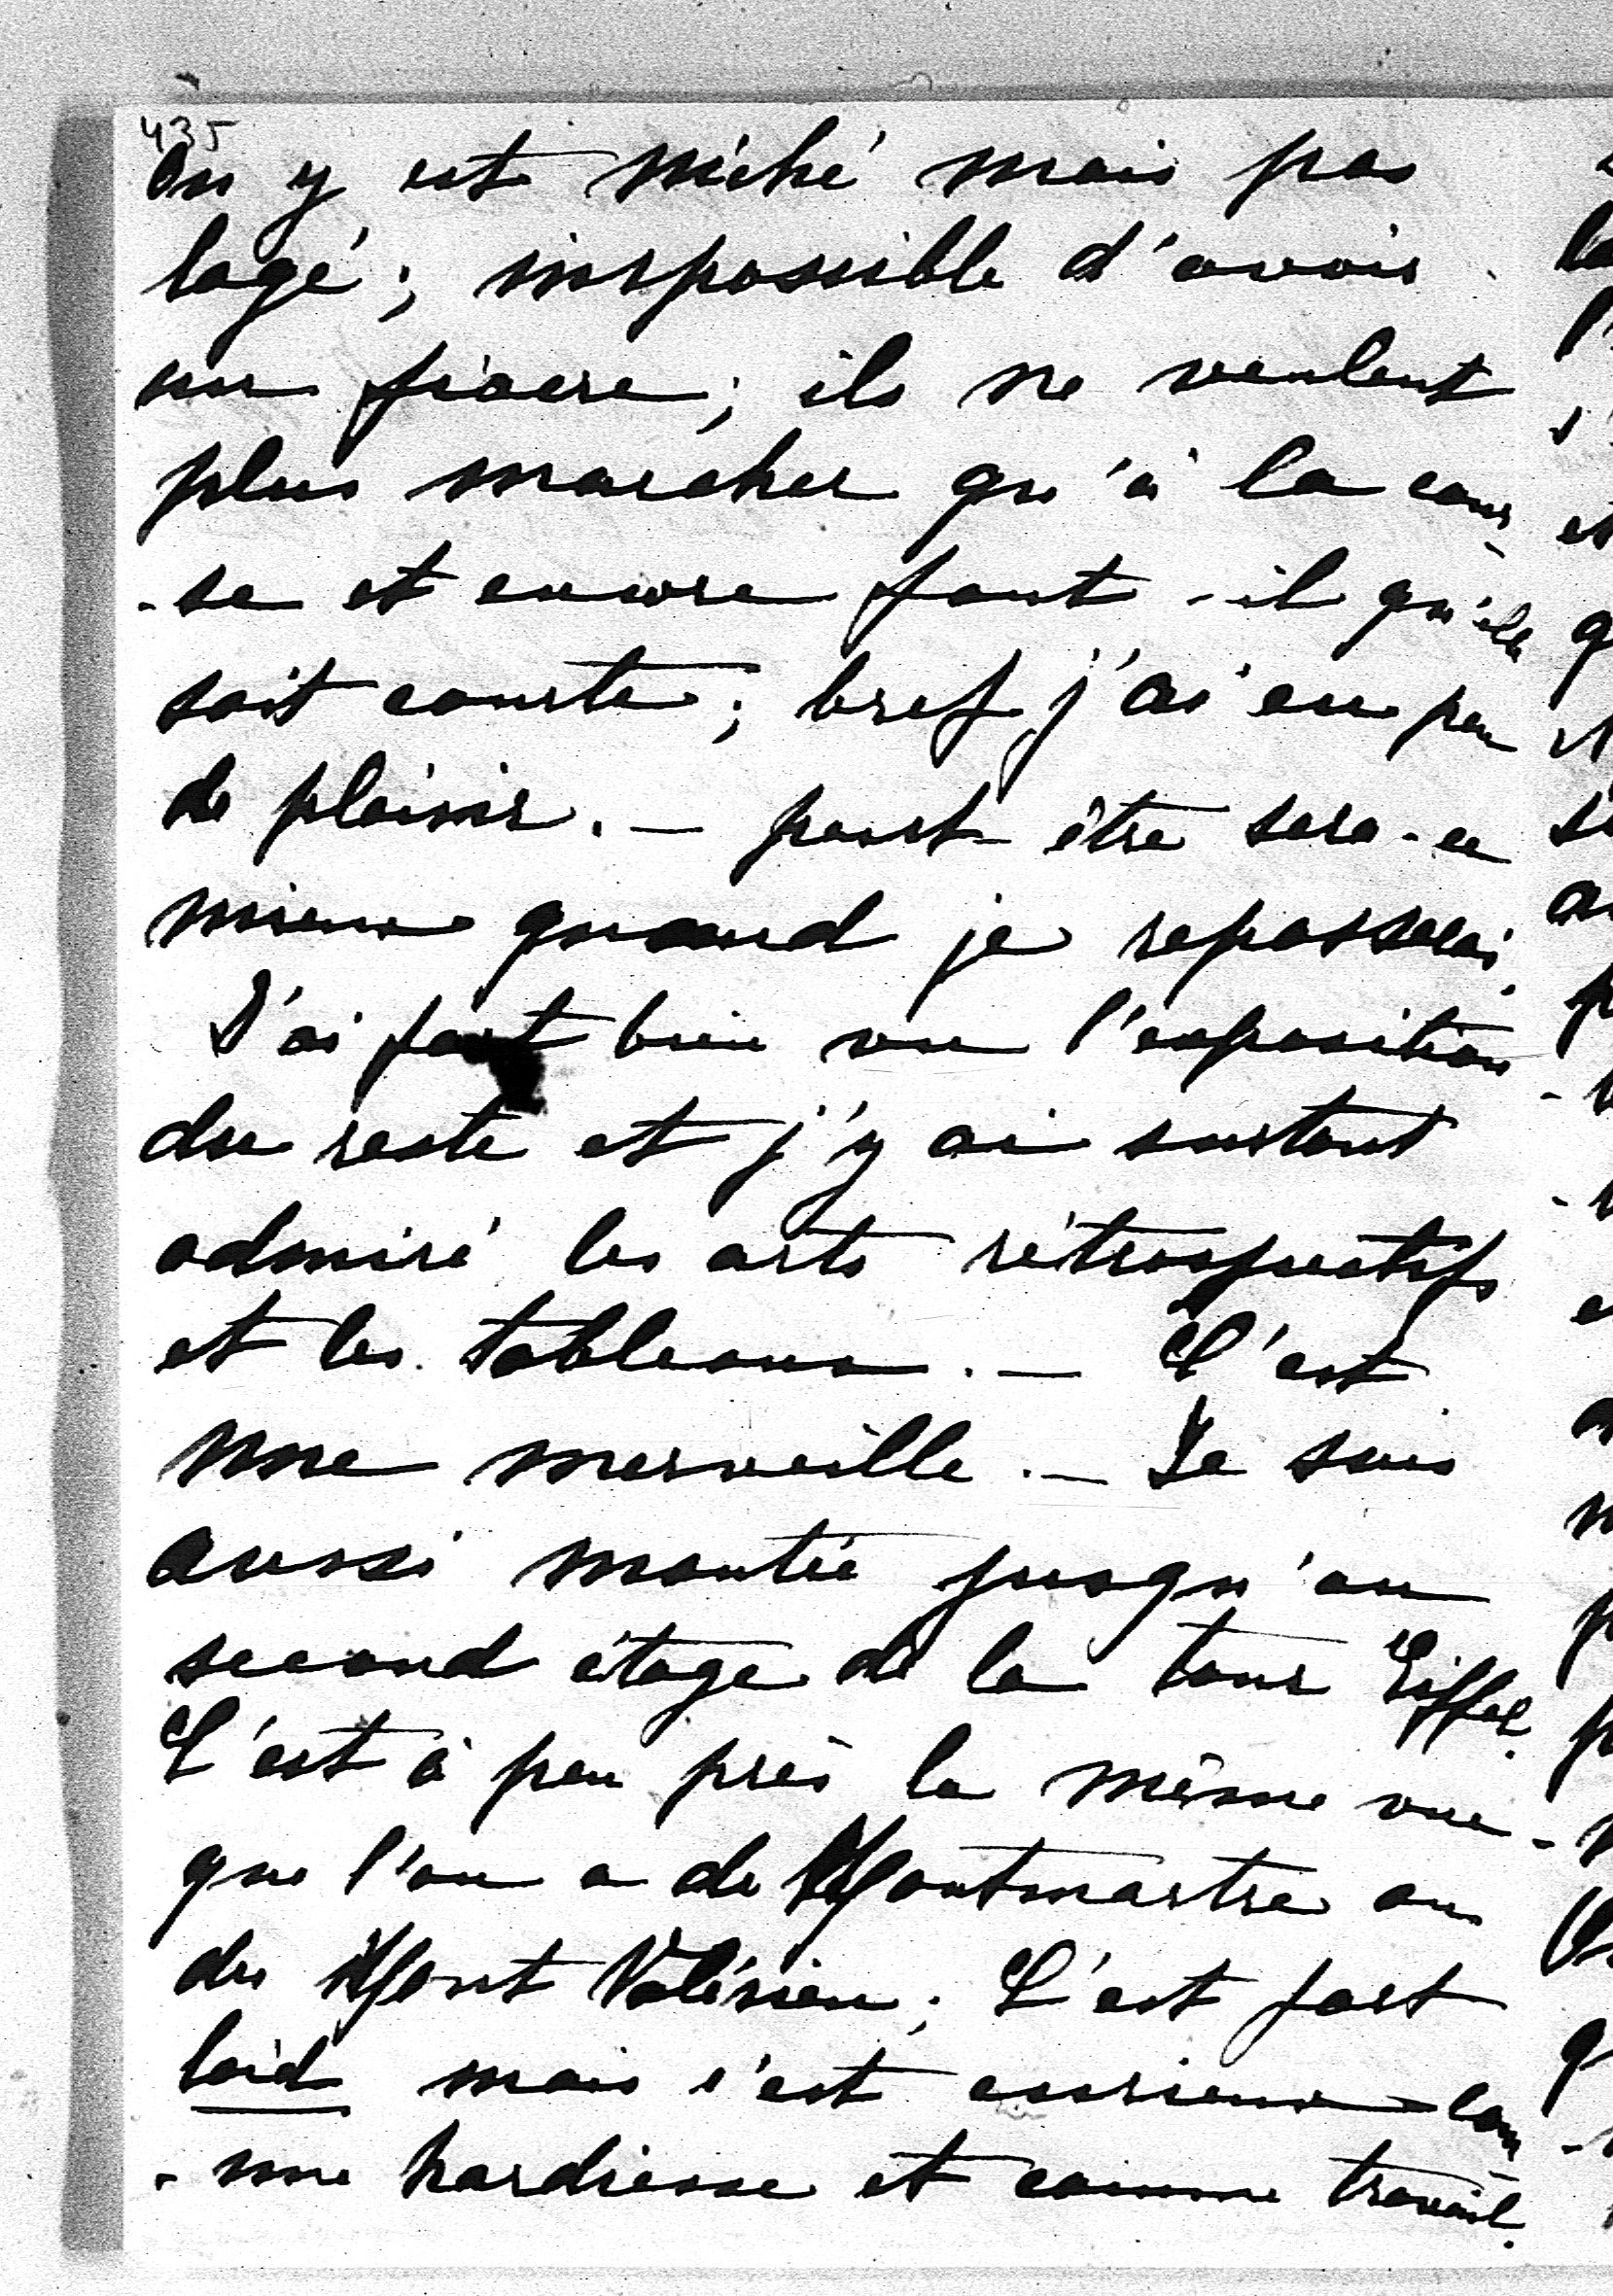 435
On y est niché mais pas
logé ; impossible d'avoir
un fiacre ; ils ne veulent
plus marcher qu'à la cour-
-se et encore faut-il qu'elle
soit courte ; bref j'ai eu peu
de plaisir. — peut-être sera-ce
mieux quand je repasserai.
J'ai fort bien vu l'exposition
du reste et j'y ai surtout
admiré les arts rétrospectifs
et les tableaux. — C'est
une merveille. — Je suis
aussi montée jusqu'au
second étage de la tour Eiffel.
C'est à peu près la même vue
que l'on a de Montmartre ou
du Mont Valérien ; C'est fort
laid mais c'est curieux com
-me hardiesse et comme travail.